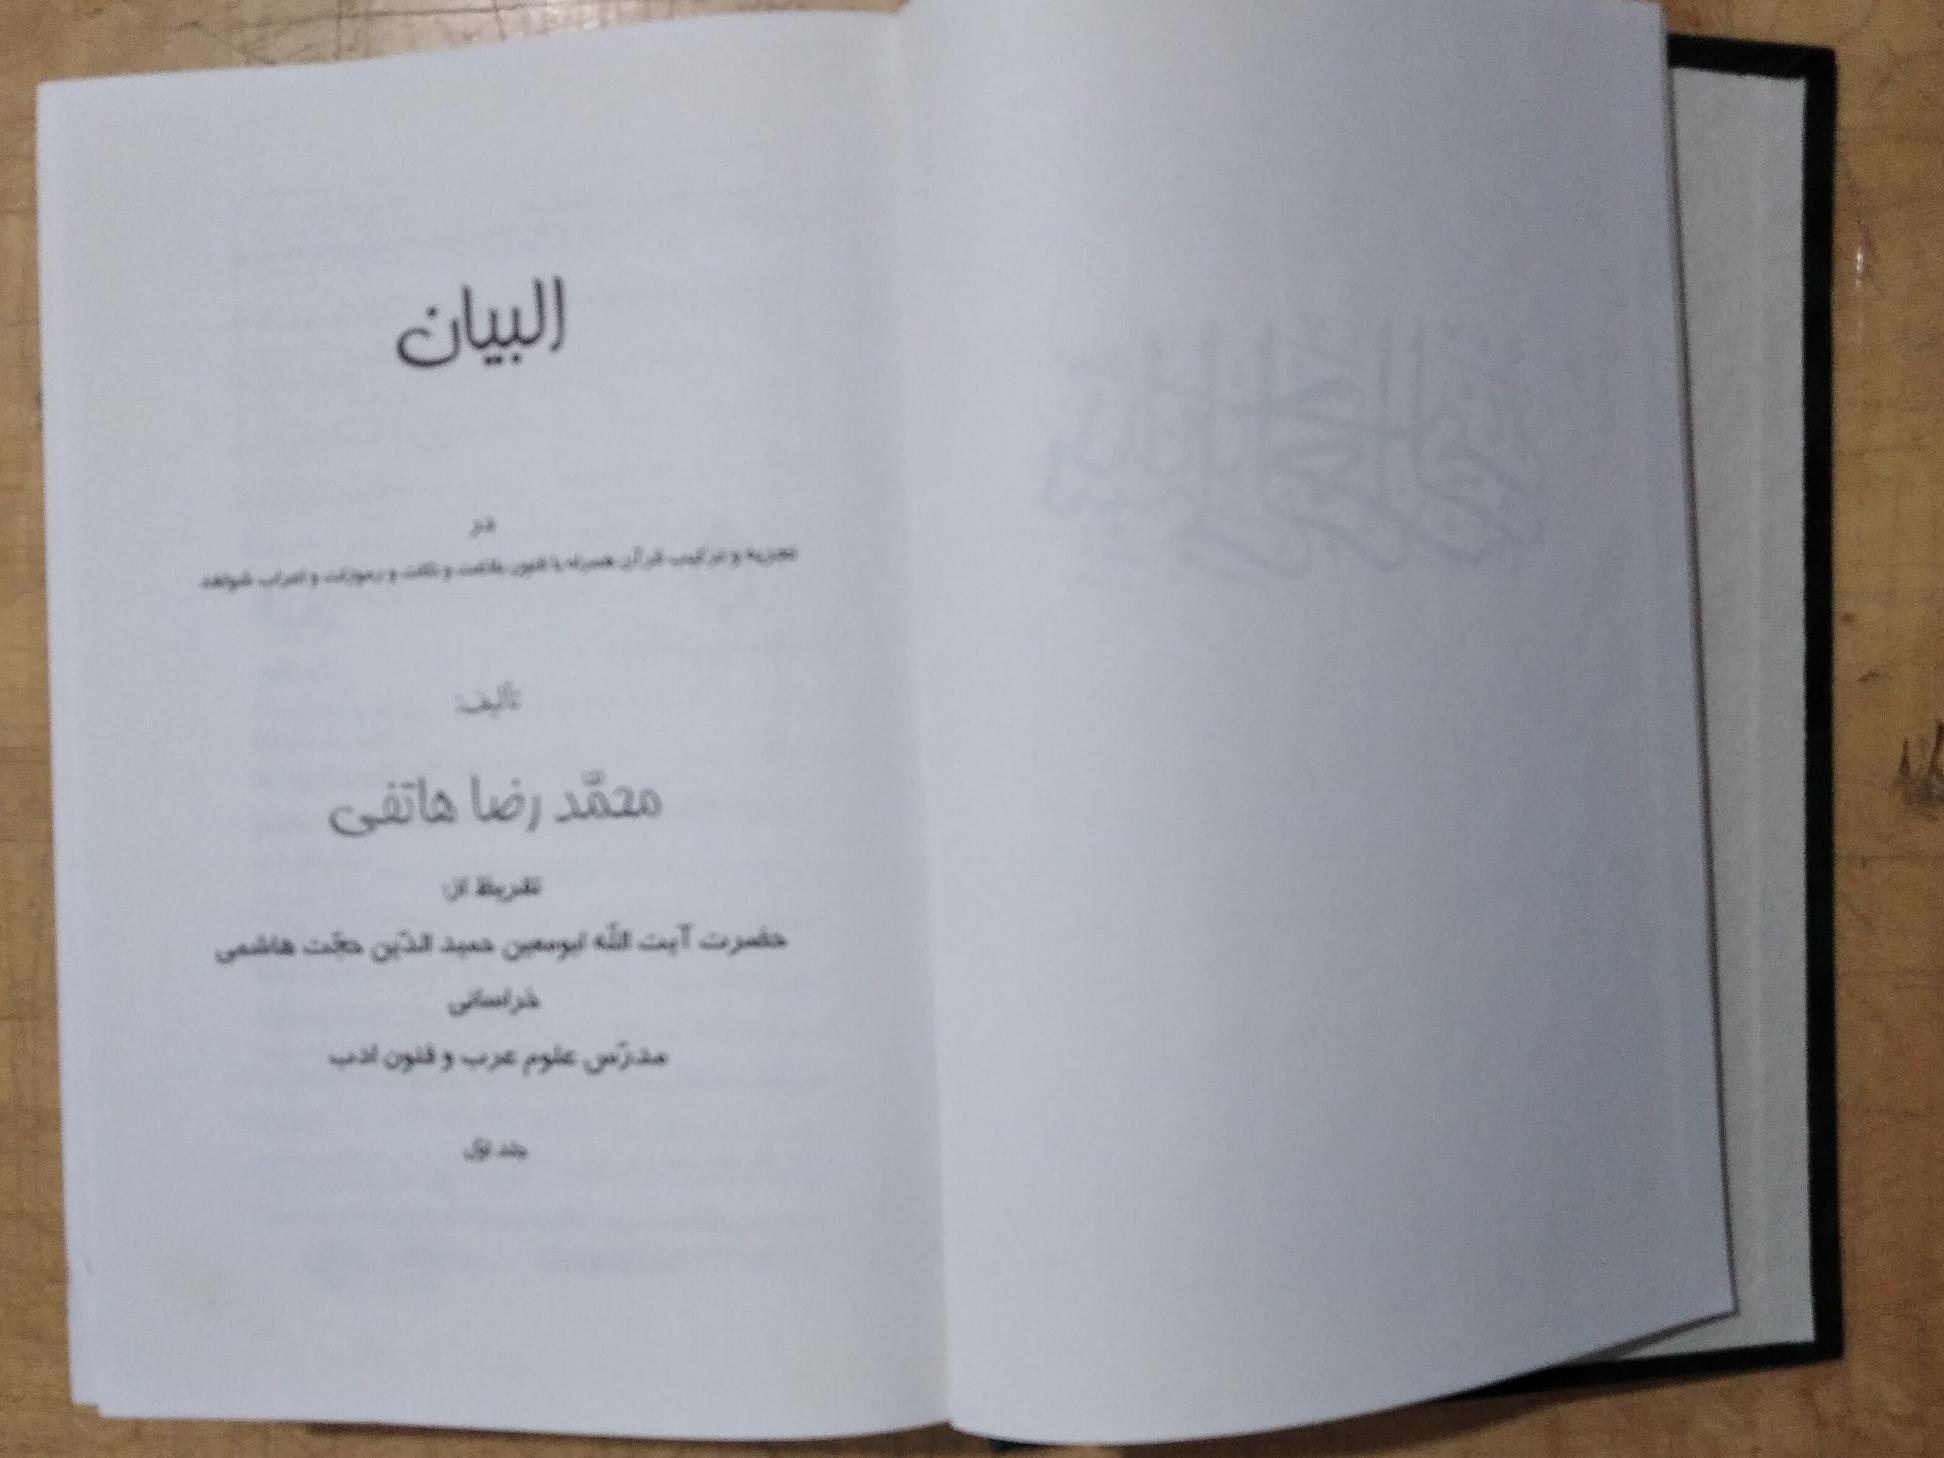 البیان
در
تجزیه و ترکیب قرآن همراه با فنون بلاغت و نکات و رموزات و اعراب شواهد
تألیف:
محمّد رضا هاتفی
تقریظ از:
حضرت آیت اللّه ابومعین حمید الدّین حجّت هاشمی
خراسانی
مدرّس علوم عرب و فنون ادب
جلد اوّل